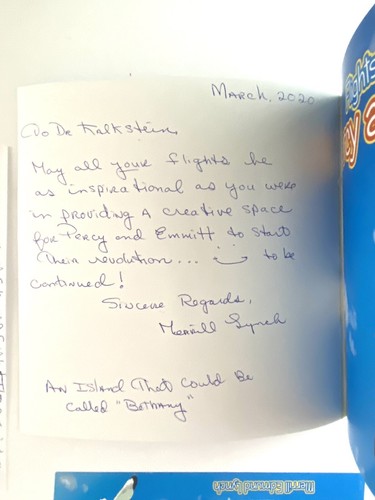 March, 2020
To Dr Kalkstein,
May all your flights be
as inspirational as you were
in providing a creative space
for Percy and Emmitt to start
their revolution... to be
continued!
Sincere Regards,
Merrill Lynch
An Island That Could Be
called "Bethany"
flights
ay a